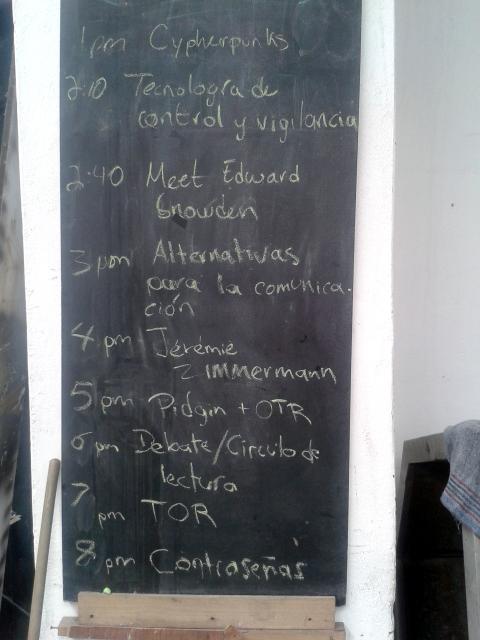 1pm Cypherpunks
2:10 Tecnología de
control y vigilancia
2:40 Meet Edward
Snowden
3 pm Alternativas
para la comunica-
ción
4 pm Jérémie
Zimmermann
5 pm Pidgin + OTR
6 pm Debate/Circulo de
lectura
7 pm TOR
8 pm Contraseñas